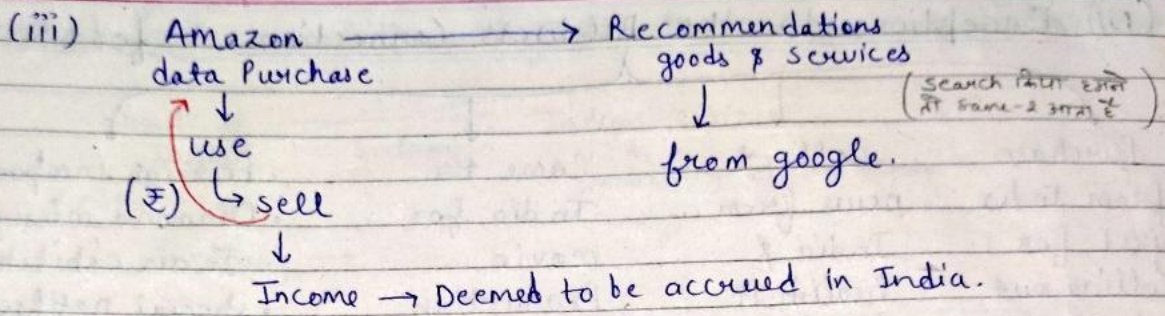 (iii) Amazon → Recommendations
data Purchase goods & services
(search किया हमने
तो same-2 आता है)
↓ ↓
use from google.
(₹) ↳ sell
↓
Income → Deemed to be accrued in India.